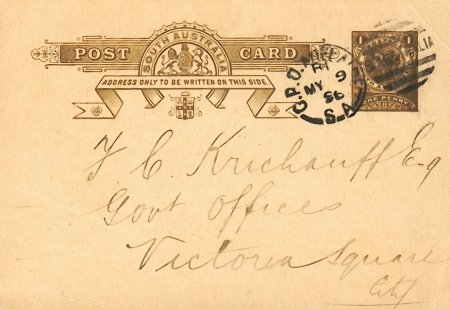 SOUTH AUSTRALIA
POST CARD
ADDRESS ONLY TO BE WRITTEN ON THIS SIDE
1
ONE PENNY
G.P.O. ADELAIDE
MY 9
96
S.A
F C. Krichauff Esq
Govt Offices
Victoria Square
City